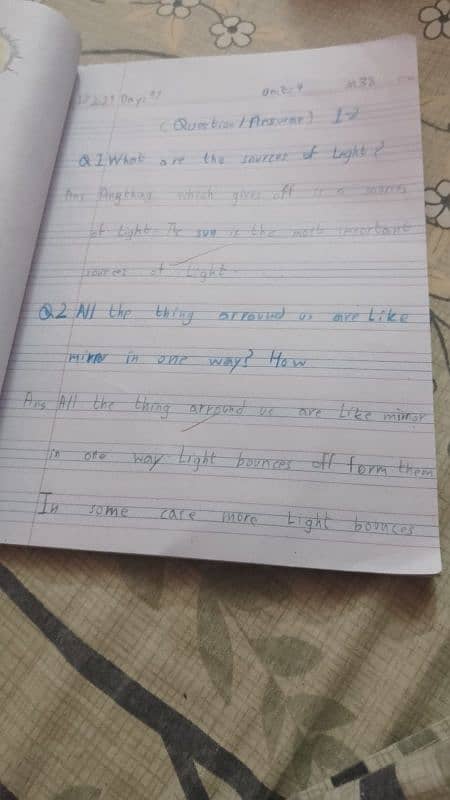 Day:
Unit:4 M38
(Question/Answer) 1-2
Q 1 What are the sources of Light?
Ans Anything which gives off is a sources
of Light. The sun is the most important
sources of Light.
Q2 All the thing arround us are Like
mirror in one way? How
Ans All the thing arround us are Like mirror
in one way Light bounces off form them
In some case more Light bounces